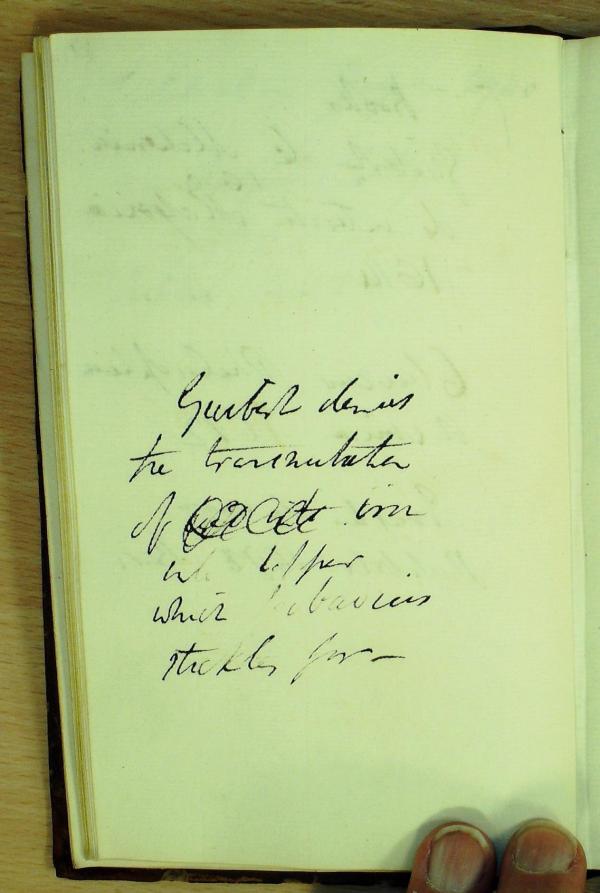 Guibert denies
the transmutation
of iron
into Copper
which Libavius
stickles for –